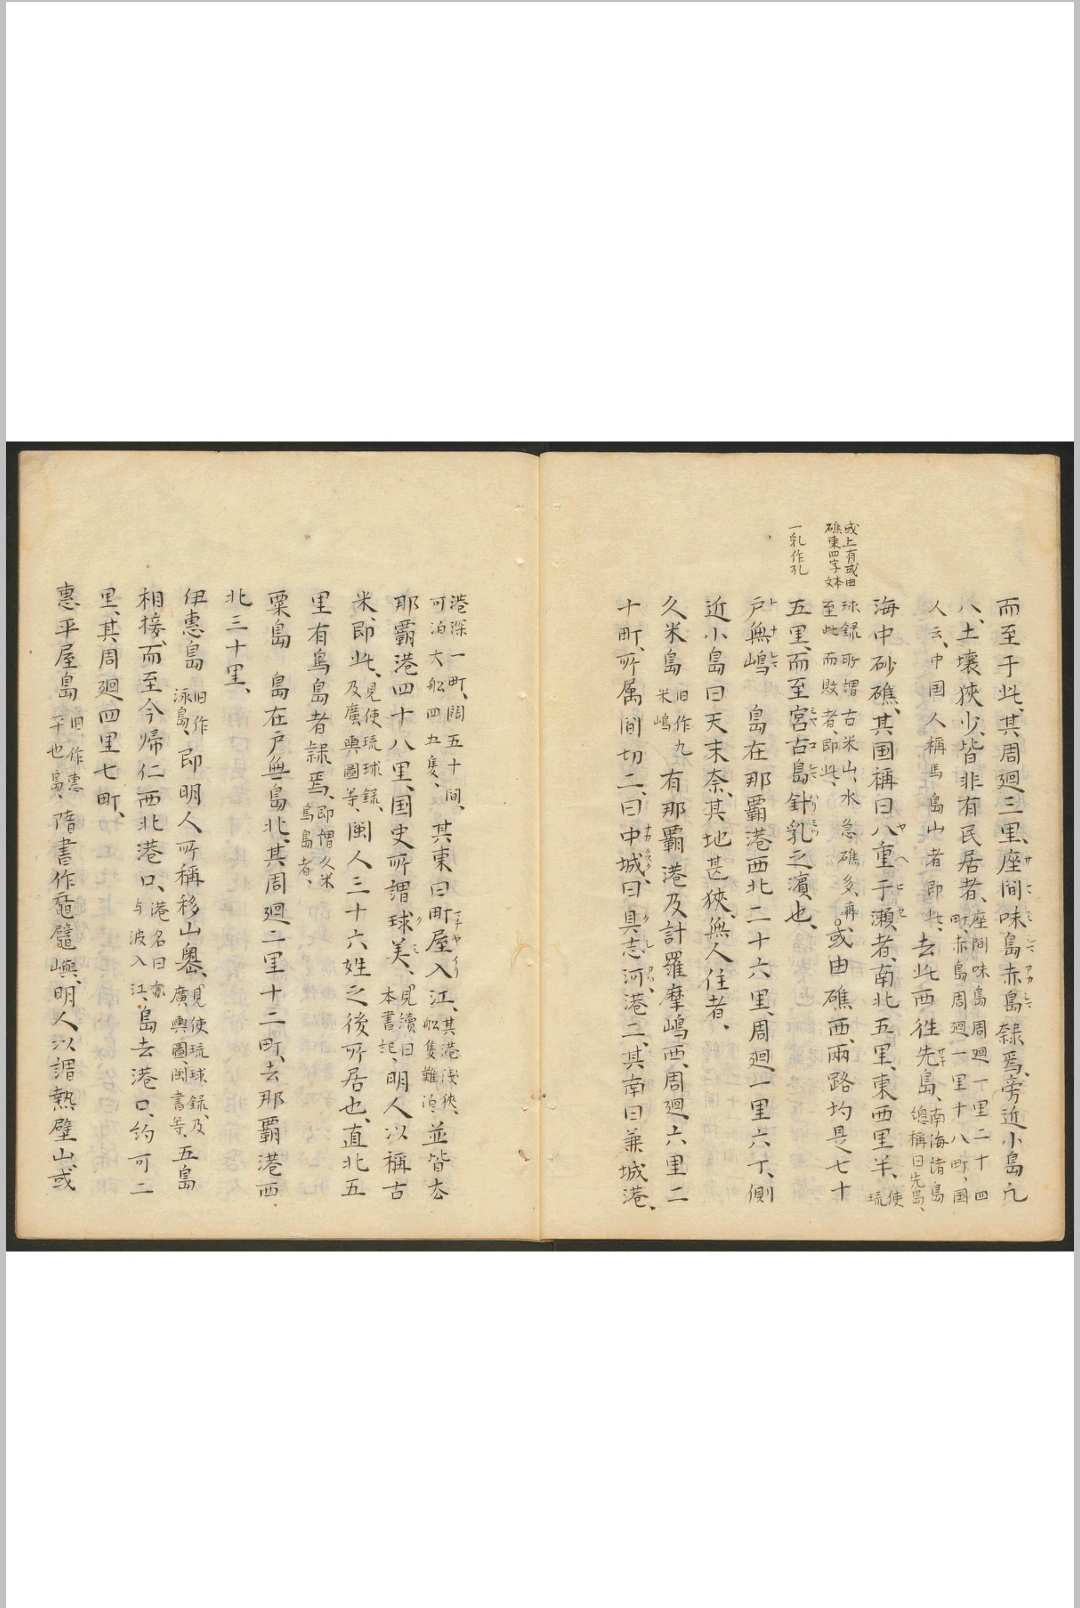 或上有或由
礁東四字文本
一乳作孔
而至于此、其周廻三里、座間味島赤島隸焉、旁近小島凢
八、土壤狹少、皆非有民居者、座間味島周廻一里二十四町、赤島周廻一里十八町、国
人云、中国人稱馬島山者即此、去此西徃先島、南海諸島總稱曰先島、
海中砂礁、其国稱曰八重于瀬者、南北五里、東西里半、使琉
球録所謂古米山、水急礁多、再至此而敗者、即此、或由礁西、兩路均是七十
五里、而至宮古島針乳之濱也、
戸無嶋 島在那覇港西北二十六里、周廻一里六丁、側
近小島曰天末奈、其地甚狹、無人住者、
久米島 旧作九米嶋 有那覇港及計羅摩嶋西、周廻六里二
十町、所属間切二、曰中城、曰具志河、港二、其南曰兼城港、
港深一町、闊五十間、可泊大船四五隻、其東曰町屋入江、其港浅狹、船隻難泊、並皆去
那覇港四十八里、国史所謂球美、見續日本書紀、明人以稱古
米、即此、見使琉球録、及廣輿圖等、閩人三十六姓之後所居也、直北五
里有鳥島者隸焉、即謂久米鳥島者、
粟島 島在戸無島北、其周廻二里十二町、去那覇港西
北三十里、
伊惠島 旧作泳島、即明人所稱移山嶴、見使琉球録、及廣輿圖、閩書等、五島
相接、而至今帰仁西北港口、港名曰 与波入江、島去港口、約可二
里、其周廻四里七町、
惠平屋島 旧作惠平也島、隋書作黿鼊嶼、明人以謂熱壁山、或